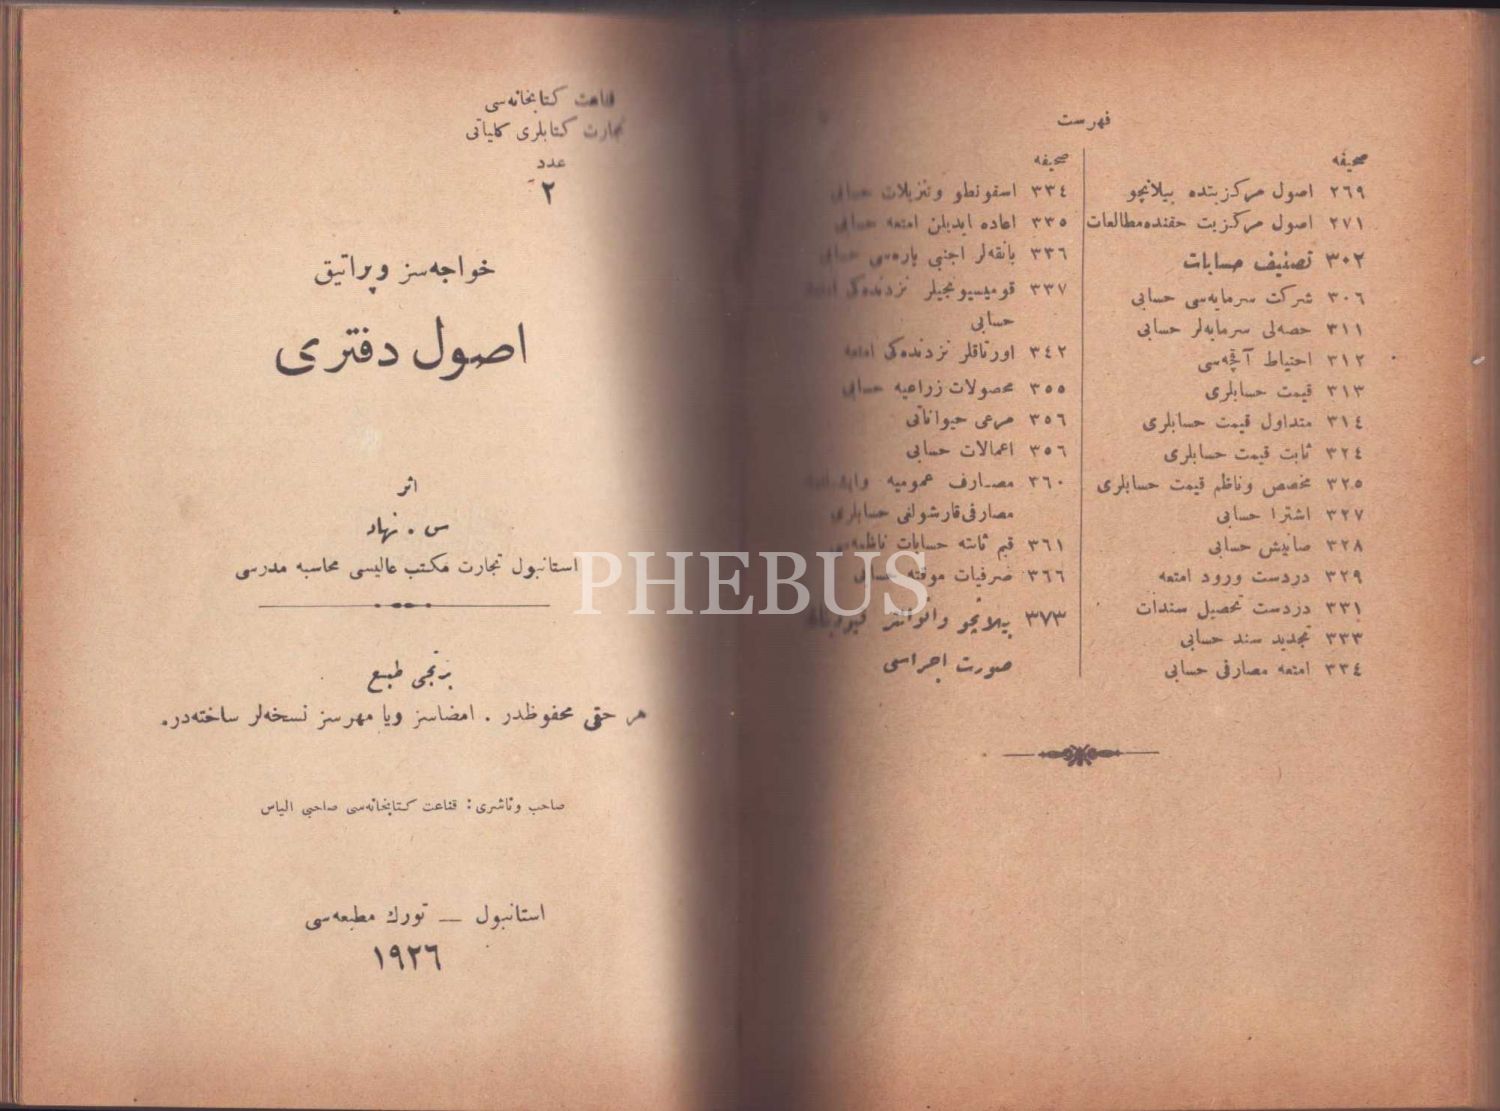 فهرست
صحیفه
٢٦٩ اصول مرکزیتده بیلانچو
٢٧١ اصول مرکزیت حقنده مطالعات
٣٠٢ تصنیف حسابات
٣٠٦ شرکت سرمایه‌سی حسابی
٣١١ حصه‌لی سرمایه‌لر حسابی
٣١٢ احتیاط آقچه‌سی
٣١٣ قیمت حسابلری
٣١٤ متداول قیمت حسابلری
٣٢٤ ثابت قیمت حسابلری
٣٢٥ مخصص و ناظم قیمت حسابلری
٣٢٧ اشترا حسابی
٣٢٨ صاتیش حسابی
٣٢٩ دردست ورود امتعه
٣٣١ دردست تحصیل سندات
٣٣٣ تجدید سند حسابی
٣٣٤ امتعه مصارفی حسابی
صحیفه
٣٣٤ اسقونطو و تنزیلات حسابی
٣٣٥ اعاده ایدیلن امتعه حسابی
٣٣٦ بانقه‌لر اجنبی پاره‌سی حسابی
٣٣٧ قومیسیونجیلر نزدنده‌کی امتعه
حسابی
٣٤٢ اورتاقلر نزدنده‌کی امتعه
٣٥٥ محصولات زراعیه حسابی
٣٥٦ مرعی حیواناتی
٣٥٦ اعمالات حسابی
٣٦٠ مصارف عمومیه
مصارفی قارشولغی حسابلری
٣٦١ قیم ثابته حسابات ناظمه‌سی
٣٦٦ صرفیات موقته حسابی
٣٧٣ بیلانچو و انوانتر قیوداتنك
صورت اجراسی
قناعت کتابخانه‌سی
تجارت کتابلری کلیاتی
عدد
٢
خواجه‌سز و پراتیق
اصول دفتری
اثر
س . نهاد
استانبول تجارت مکتب عالیسی محاسبه مدرسی
برنجی طبع
هر حقی محفوظدر . امضاسز ویا مهرسز نسخه‌لر ساخته‌در.
صاحب و ناشری : قناعت کتابخانه‌سی صاحبی الیاس
استانبول — تورك مطبعه‌سی
١٩٢٦
PHEBUS